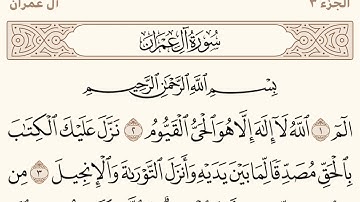 الجزء ٣
آل عمران
سُورَةُ آلِ عِمْرَانَ
بِسْمِ اللَّهِ الرَّحْمَٰنِ الرَّحِيمِ
الٓمٓ ١ اللَّهُ لَا إِلَٰهَ إِلَّا هُوَ الْحَيُّ الْقَيُّومُ ٢ نَزَّلَ عَلَيْكَ الْكِتَابَ
بِالْحَقِّ مُصَدِّقًا لِّمَا بَيْنَ يَدَيْهِ وَأَنزَلَ التَّوْرَاةَ وَالْإِنجِيلَ ٣ مِن